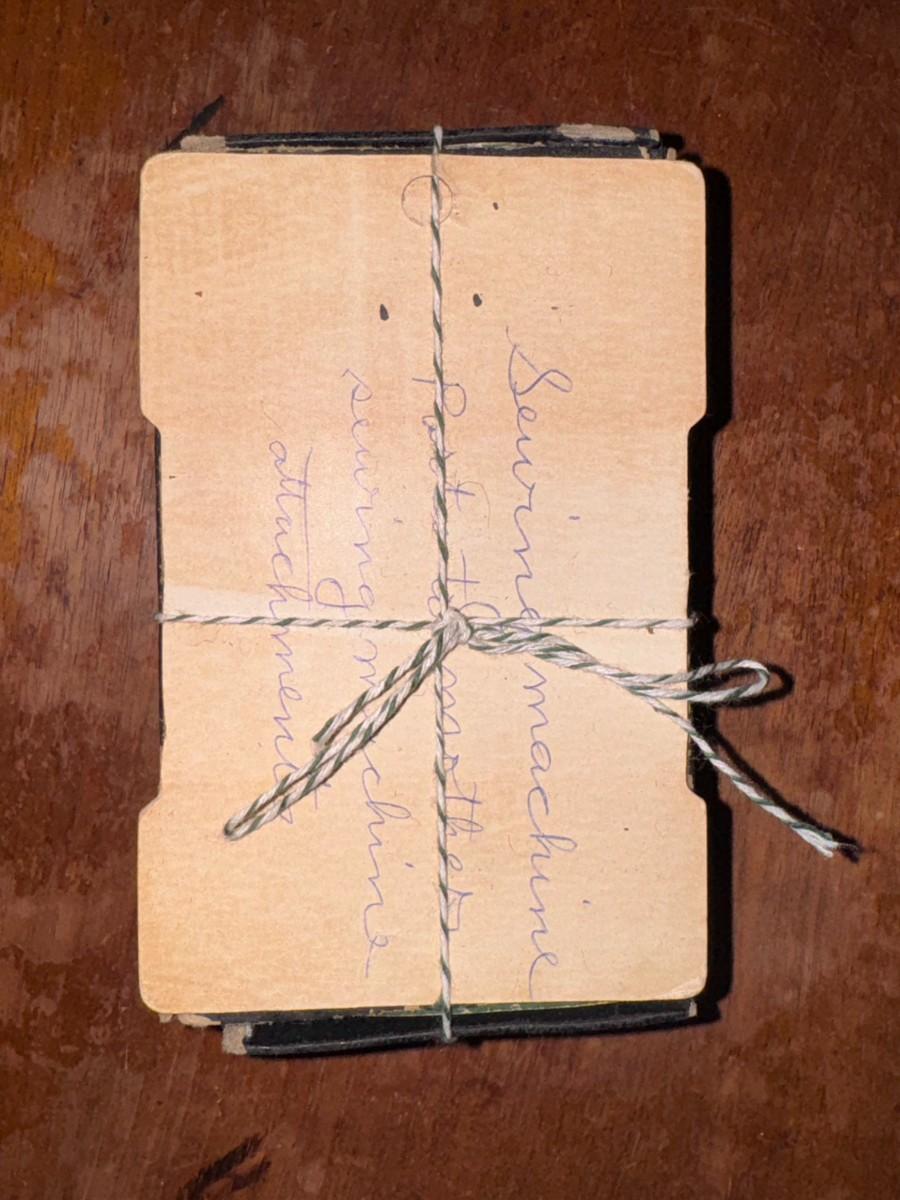 Sewing machine
Part to mother
sewing machine
attachments